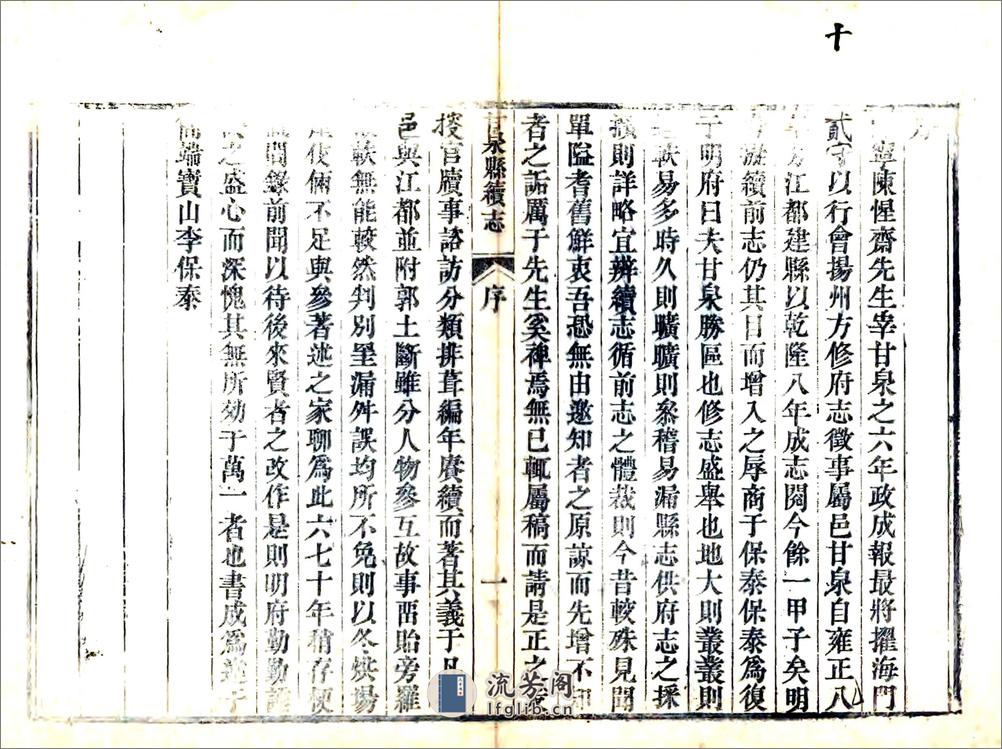 十
序
寧陳惺齋先生宰甘泉之六年政成報最將擢海門
貳守以行會揚州方修府志徵事屬邑甘泉自雍正八
年分江都建縣以乾隆八年成志閱今餘一甲子矣明
續前志仍其目而增入之辱商于保泰保泰為復
于明府曰夫甘泉勝區也修志盛舉也地大則叢叢則
軼易多時久則曠曠則叅稽易漏縣志供府志之採
擷則詳略宜辨續志循前志之體裁則今昔較殊見聞
單隘耆舊鮮衷吾恐無由邀知者之原諒而先增不知
者之詬厲于先生奚裨焉無已輒屬稿而請是正之
甘泉縣續志
序
一
按官牘事諮訪分類排葺編年賡續而著其義于凡
邑與江都並附郭土斷雖分人物參互故事畱貽旁羅
軼無能較然判別罣漏舛誤均所不免則以冬烘揚
使倆不足與參著述之家聊為此六七十年稍存梗
聞錄前聞以待後來賢者之改作是則明府勤勤諈
之盛心而深愧其無所効于萬一者也書成為述于
端寶山李保泰
流芳阁
lfglib.cn